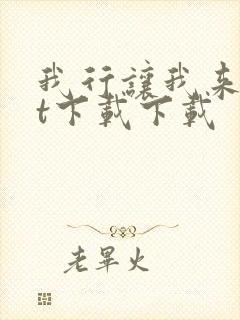 我行讓我来
t下載下載
老畢火